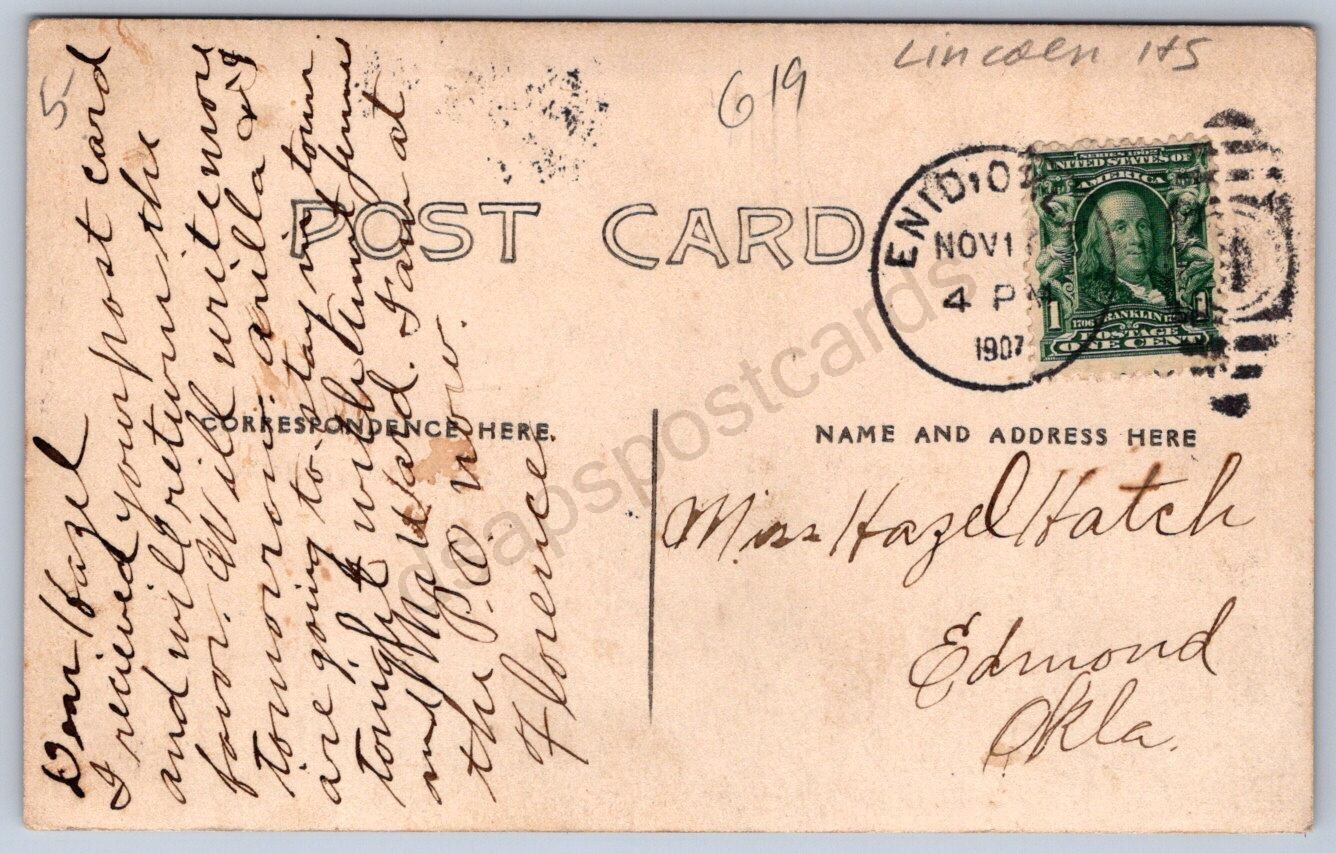 5-
619
Lincoln HS
POST CARD
ENID, O
NOV 1
4 PM
1907
SERIES 1902
UNITED STATES OF
AMERICA
1 1
1706 FRANKLIN
POSTAGE
ONE CENT
CORRESPONDENCE HERE.
NAME AND ADDRESS HERE
Dear Hazel
I recieved your post card
and will return the
favor. Will write more
tomorrow. arilla & I
are going to stay in town
tonight with
and Ma Ward. I am at
the P.O. now.
Florence
Miss Hazel Hatch
Edmond
Okla.
dsapspostcards